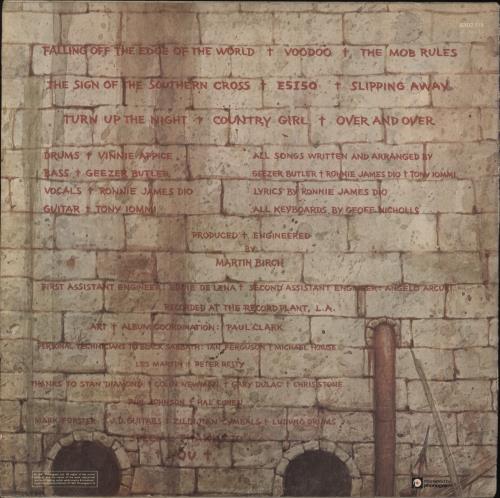 FALLING OFF THE EDGE OF THE WORLD † VOODOO † THE MOB RULES
THE SIGN OF THE SOUTHERN CROSS † E5150 † SLIPPING AWAY
TURN UP THE NIGHT † COUNTRY GIRL † OVER AND OVER
DRUMS † VINNIE APPICE
BASS † GEEZER BUTLER
VOCALS † RONNIE JAMES DIO
GUITAR † TONY IOMMI
ALL SONGS WRITTEN AND ARRANGED BY
GEEZER BUTLER † RONNIE JAMES DIO † TONY IOMMI
LYRICS BY RONNIE JAMES DIO
ALL KEYBOARDS BY GEOFF NICHOLLS
PRODUCED † ENGINEERED
BY
MARTIN BIRCH
FIRST ASSISTANT ENGINEER: EDDIE DE LENA † SECOND ASSISTANT ENGINEER: ANGELO ARCURI
RECORDED AT THE RECORD PLANT, L.A.
ART † ALBUM COORDINATION: PAUL CLARK
PERSONAL TECHNICIANS TO BLACK SABBATH: IAN FERGUSON † MICHAEL HOUSE
LES MARTIN † PETER RESTY
THANKS TO STAN DIAMOND † COLIN NEWMAN † GARY DULAC † CHRIS STONE
PAUL JOHNSON † HAL COHEN
MARK FORSTER † J.D. GUITARS † ZILDJIAN CYMBALS † LUDWIG DRUMS
OU †
phonogram